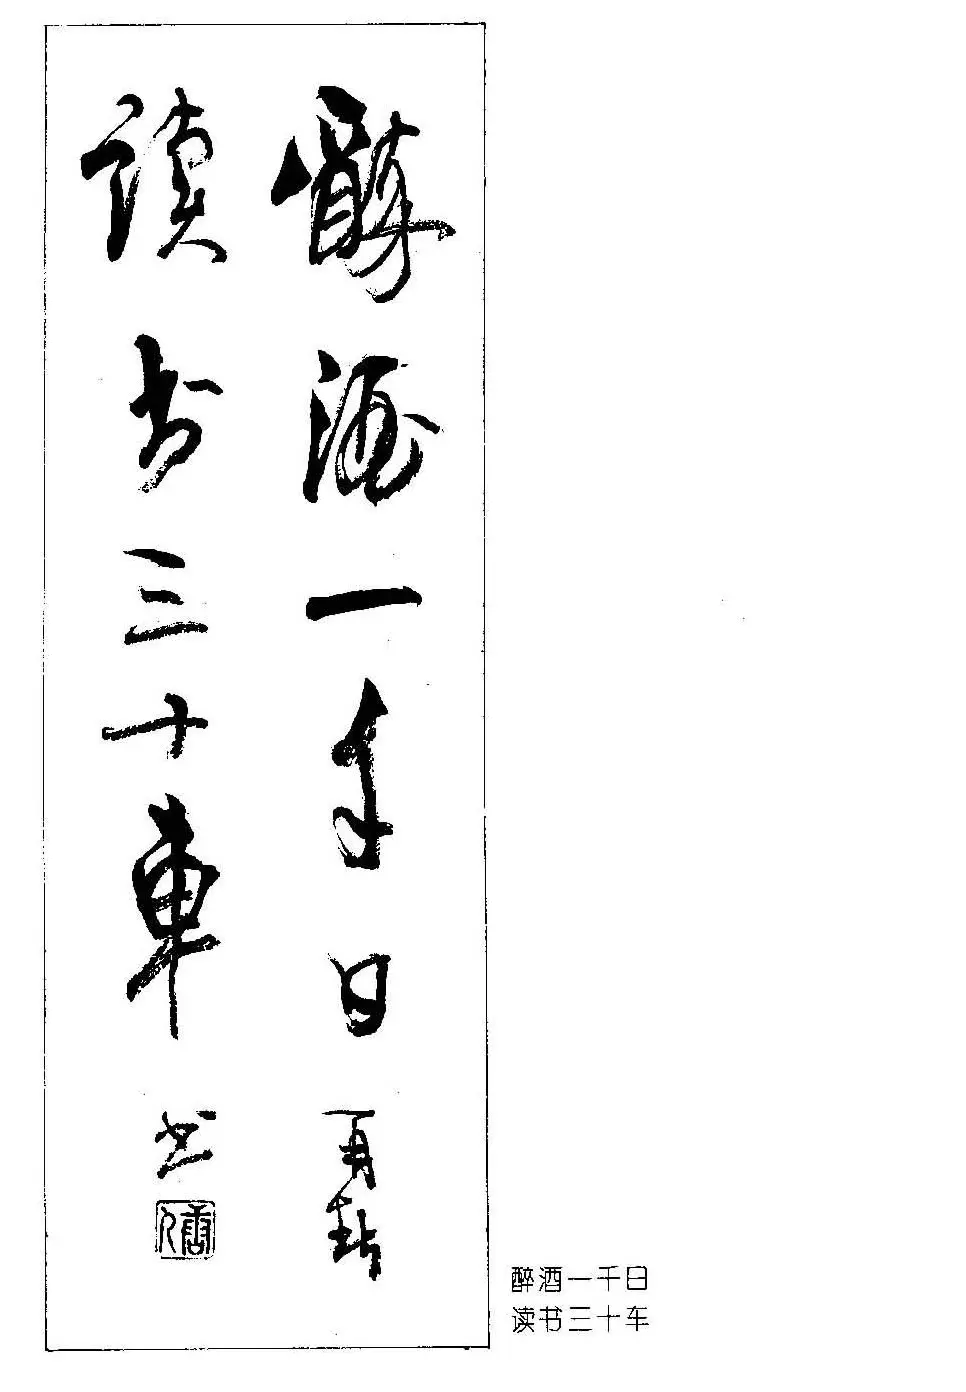 醉酒一千日
读书三十车
醉酒一千日
读书三十车